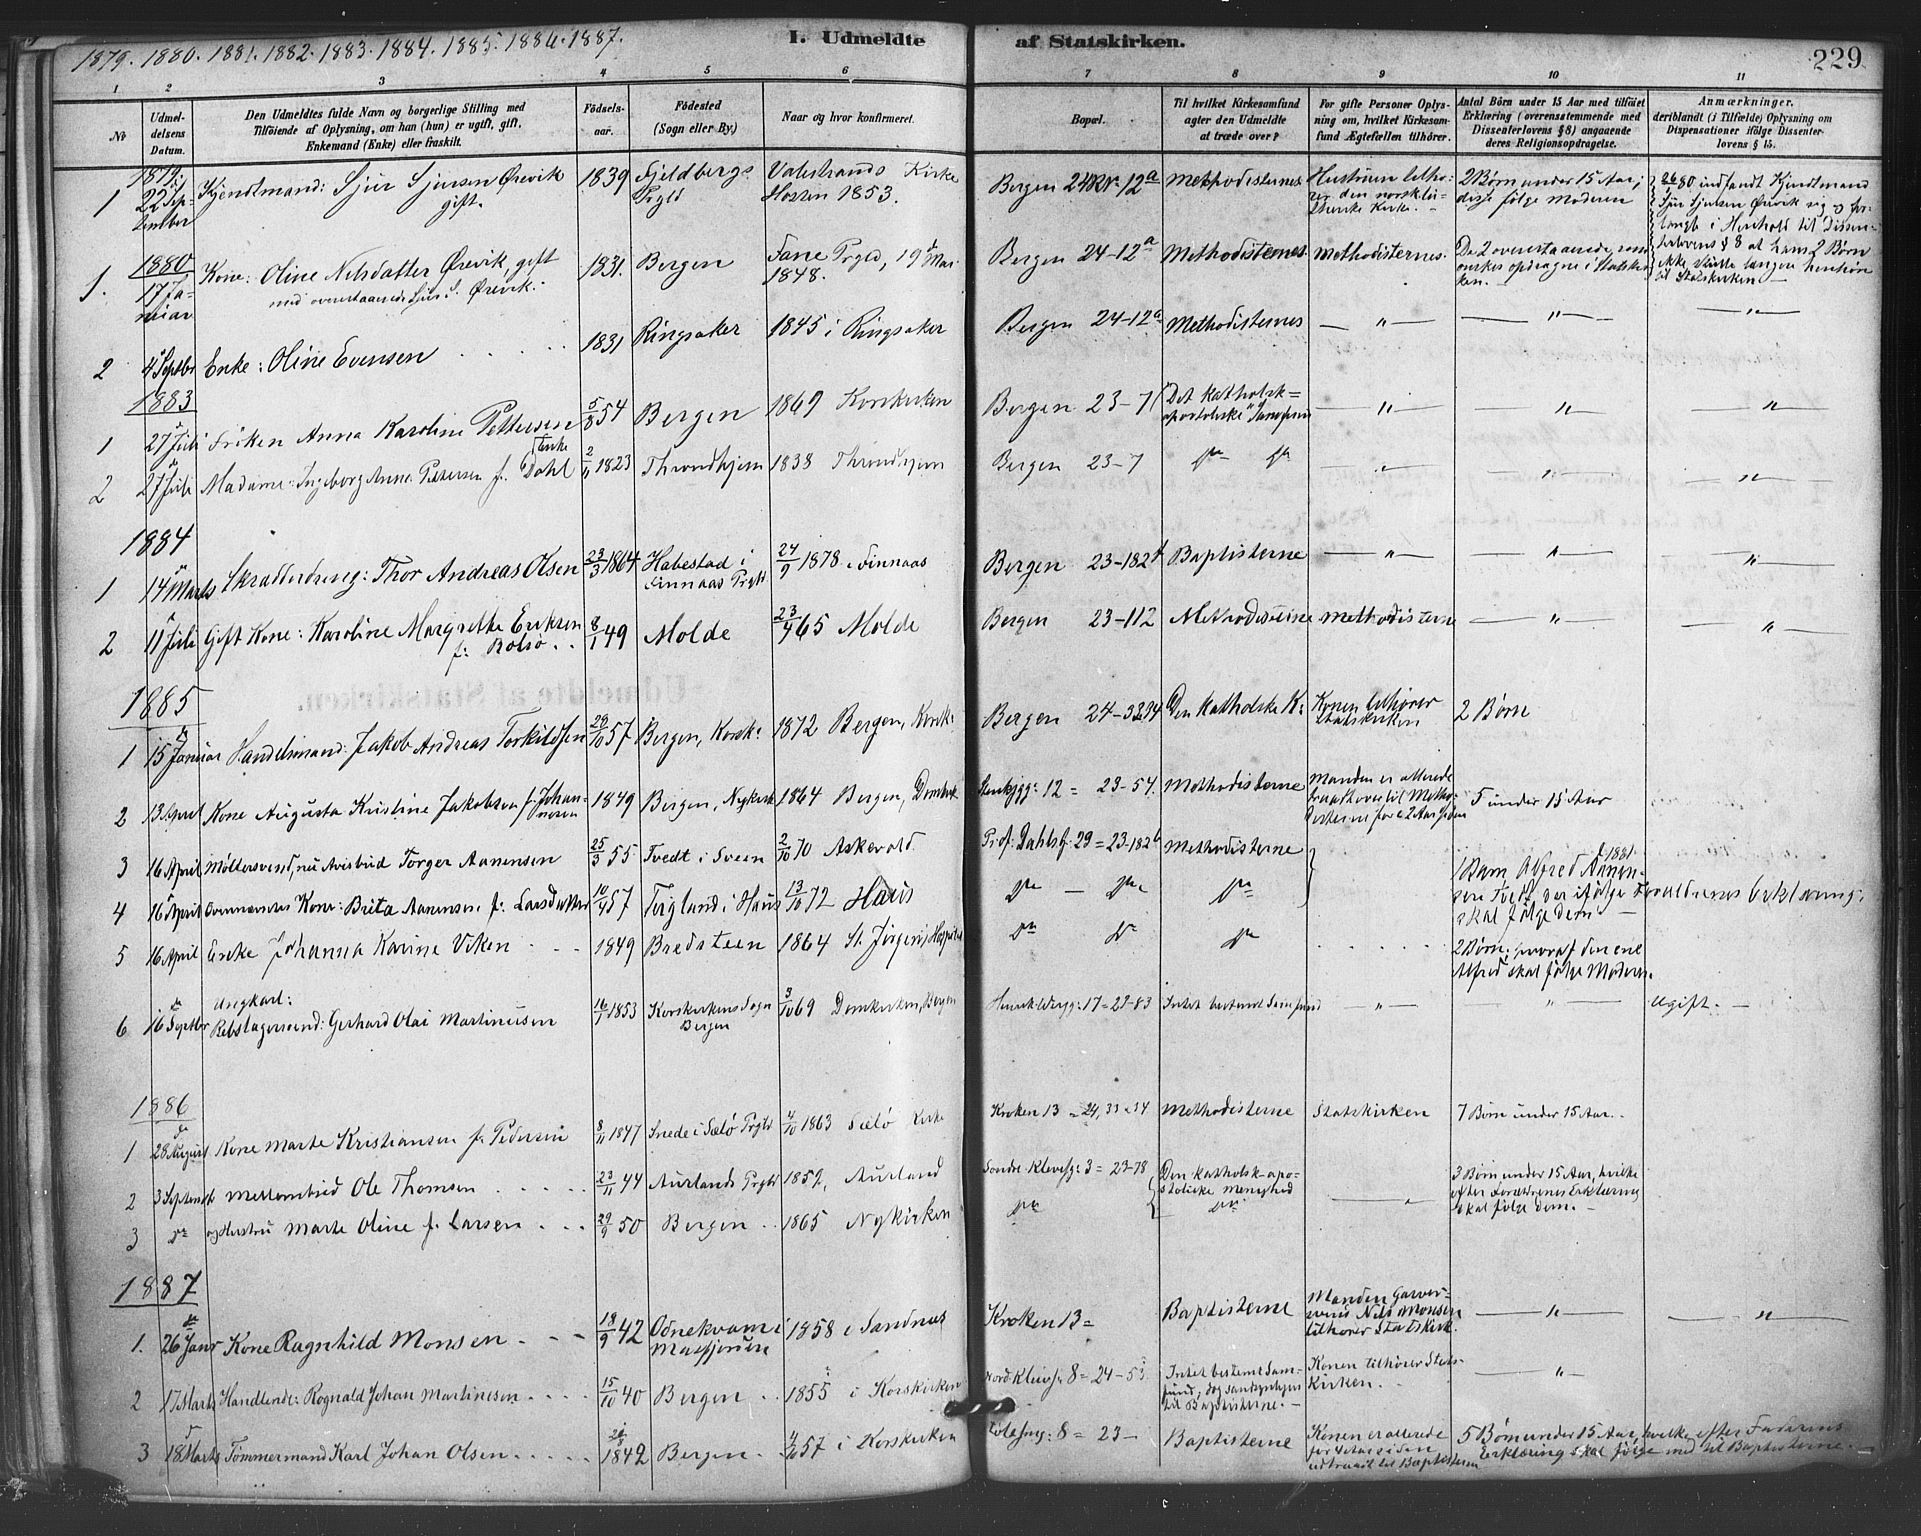 1879. 1880. 1881. 1882. 1883. 1884. 1885. 1886. 1887.
I. Udmeldte af Statskirken.
229
1 2 3 4 5 6 7 8 9 10 11
No
Udmel-
delsens
Datum.
Den Udmeldtes fulde Navn og borgerlige Stilling med
Tilføiende af Oplysning, om han (hun) er ugift, gift,
Enkemand (Enke) eller fraskilt.
Fødsels-
aar.
Fødested
(Sogn eller By.)
Naar og hvor konfirmeret.
Bopæl.
Til hvilket Kirkesamfund
agter den Udmeldte
at træde over?
For gifte Personer Oplys-
ning om, hvilket Kirkesam-
fund Ægtefællen tilhører.
Antal Børn under 15 Aar med tilføiet
Erklæring (overensstemmende med
Dissenterlovens § 8) angaaende
deres Religionsopdragelse.
Anmærkninger,
deriblandt (i Tilfælde) Oplysning om
Dispensationer ifølge Dissenter-
lovens § 15.
1879.
1 22 Sep-
tember Kjendtmand: Sjur Sjursen Ørevik
gift. 1839 Fjeldbergs
Prgld Valestrands Kirke
Høsten 1853. Bergen 24 Kr. 12a Methodisternes Hustruen tilhø-
rer den norsk lu-
therske Kirke. 2 Børn under 15 Aar;
disse følge Moderen
26/ 80 indfandt Kjendtmand
Sjur Sjursen Ørevik sig og for-
langte i Henhold til Dissen-
terlovens § 8 at hans 2 Børn
ikke skulde længere henhøre
til Statskirken
1880
1. 17 Ja-
nuar Kone: Oline Nilsdatter Ørevik, gift
med ovenstaaende Sjur S. Ørevik. 1831. Bergen Fane Prgld, 19 Mai
1848. Bergen 24-12a Methodisternes. Methodisternes. De 2 ovenstaaende, som
ønskes opdragne i Statskir-
ken.
2 4 Septbr Enke: Oline Evensen 1831 Ringsaker 1845 i Ringsaker Bergen 24-12a Methodisternes — " — — " — — " —
1883
1 27 Juli Frøken Anna Karoline Pettersen 5/8 54 Bergen 1869 Korskirken Bergen 23-7 Det katholsk=
apostolske Samfund — " — — " — — " —
2 27 Juli Madame: Ingeborg Anne Pettersen f. Dahl Enke 2/11 1823 Throndhjem 1838 Throndhjem Bergen 23-7 do do — " — — " — — " —
1884
1 14 Marts Skrædderdreng: Thor Andreas Olsen 23/3 1864 Habestad i
Finnaas Prgld 24/9 1878 i Finnaas Bergen 23-182 Baptisterne — " — — " — — " —
2 11 Juli Gift Kone: Karoline Margrethe Eriksen
f. Bolsø 8/1 49 Molde 23/7 65 Molde Bergen 23-112 Methodisterne Methodisterne — " — — " —
1885
1 15 Januar Handelsmand: Jakob Andreas Torkildsen 29/10 57 Bergen, Korsk: 1872 Bergen, Korsk: Bergen 24-3334 Den katholske K: Konen tilhører
Statskirken 2 Børn
2 13 April Kone Augusta Kristine Jakobsen f. Johan-
nesen 1849 Bergen, Nykirk 1864 Bergen, Domkirk 12 = 23-54. Methodisterne Manden er allerede
traadt over til Metho-
disterne for c. 2 Aar siden 5 under 15 Aar
3 16 April Møllersvend, nu Avisbud Torger Aanensen 25/3 55 Tvedt i Sveen 2/10 70 Askevold Prof: Dahlsg: 29 = 23-182b Methodisterne
1 Barn, Alfred Aanen-
sen Tvedt, f. 1881 der ifølge Forældrenes Erklæring
skal følge dem.
4 16 April Ovennævntes Kone: Brita Aanensen f. Larsdatter 10/4 57 Tegland i Haus 13/10 72 Haus do — do do
5 16 April Enke Johanna Karine Viken 1849 Bredsteen 1864 St. Jørgens Hospital do do do 2 Børn; hvoraf den ene
Alfred skal følge Moderen.
6 16 Septbr Ungkarl:
Rebslagersvend: Gerhard Olai Martinussen 16/7 1853 Korskirkens Sogn
Bergen 3/10 69 Domkirken, Bergen 17 = 22-83 Intet bestemt Samfund — " — — " — Ugift.
1886
1 28 August Kone Marte Kristiansen f. Pedersen 8/11 1847 Snede i Sælø Prgld 4/10 1863 Sælø Kirke Kroken 13 = 24, 33-34 Methodisterne Statskirken 7 Børn under 15 Aar.
2 3 Septemb Ole Thomsen 23/11 44 Aurlands Prgld 1859, Aurland Søndre Klevesg: 3 = 23-78 Den katholsk-apo-
stoliske Menighed — " — 3 Børn under 15 Aar, hvilke
efter Forældrenes Erklæring
skal følge dem.
3 do og Hustru Marte Oline f. Larsen 29/9 50 Bergen 1865 Nykirken do do
1887
1. 26 Janr Kone Ragnhild Monsen 18/9 42 Odnekvam i
Masfjorden 1858 i Sandnes Kroken 13= Baptisterne Manden Garver-
svend Nils Monsen
tilhører Statskirk. — " — — " —
2 17 Marts Handlende: Rognald Johan Martinesen 15/10 40 Bergen 1855 i Korskirken Nord Klevesg: 8 = 24-53 Intet bestemt Sam-
fund, dog
til Baptisterne. Konen tilhører Stats-
kirken. — " —
3 18 Marts Tømmermand Karl Johan Olsen 1842 Bergen 57 i Korskirken 8 = 23- Baptisterne Konen er allerede
for 4 Aar siden
udtraadt til Baptisterne 5 Børn under 15 Aar, hvilke efter Faderens
Erklæring skal følge med til Baptisterne.